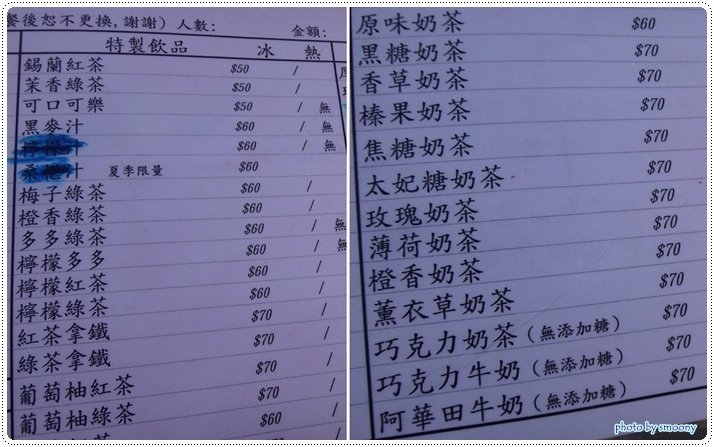 餐後恕不更換,謝謝) 人數: 金額:
特製飲品 冰 熱
錫蘭紅茶 $50 /
茉香綠茶 $50 /
可口可樂 $50 / 無
黑麥汁 $60 / 無
檸檬汁 $60 / 無
桑椹汁 夏季限量 $60
梅子綠茶 $60 /
橙香綠茶 $60 /
多多綠茶 $60 / 無
檸檬多多 $60 / 無
檸檬紅茶 $60 /
檸檬綠茶 $60 /
紅茶拿鐵 $70 /
綠茶拿鐵 $70
葡萄柚紅茶 $70
葡萄柚綠茶 $60
原味奶茶 $60
黑糖奶茶 $70
香草奶茶 $70
榛果奶茶 $70
焦糖奶茶 $70
太妃糖奶茶 $70
玫瑰奶茶 $70
薄荷奶茶 $70
橙香奶茶 $70
薰衣草奶茶 $70
巧克力奶茶 (無添加糖) $70
巧克力牛奶 (無添加糖) $70
阿華田牛奶 (無添加糖) $70
photo by smoony